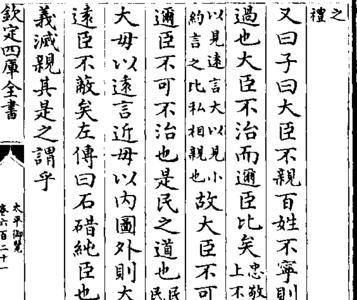 之
禮
又曰子曰大臣不親百姓不寧則
過也大臣不治而邇臣比矣
忠敬
上不
以見遠言大以見小
約言之比私相親也
故大臣不可
邇臣不可不治也是民之道也
民
民
大毋以遠言近毋以內圖外則大
遠臣不蔽矣左傳曰石碏純臣也
義滅親其是之謂乎
欽定四庫全書
太平御覽
卷六百二十一